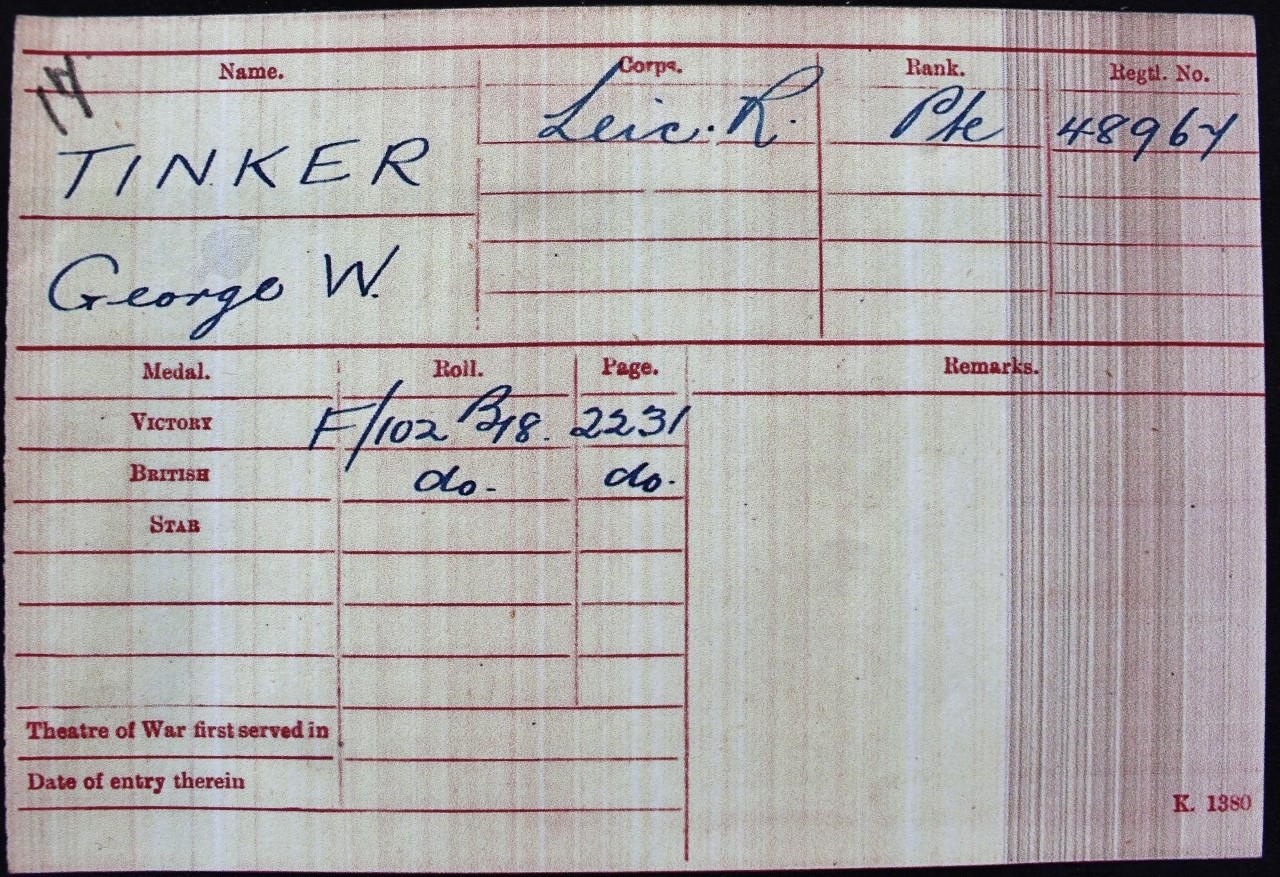 Name. Corps. Rank. Regtl. No.
14
TINKER Leic. R. Pte 48964
George W.
Medal. Roll. Page. Remarks.
VICTORY F/102 B18. 2231
BRITISH do- do.
STAR
Theatre of War first served in
Date of entry therein
K. 1380